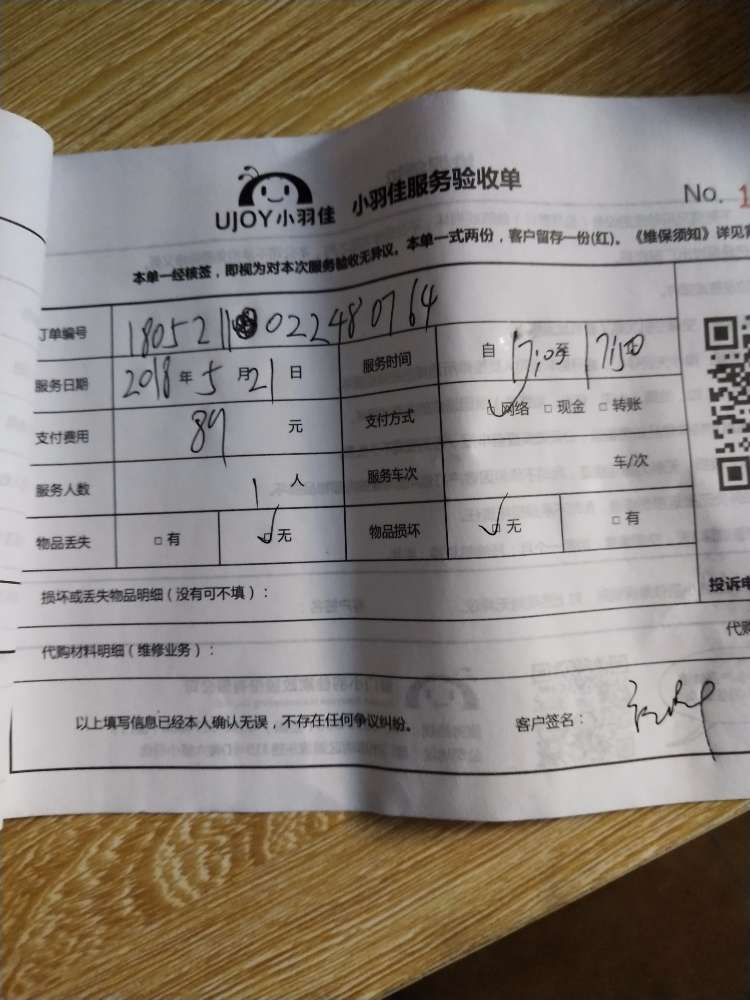 UJOY小羽佳 小羽佳服务验收单
No. 1
本单一经核签，即视为对本次服务验收无异议。本单一式两份，客户留存一份(红)。《维保须知》详见背
订单编号 180521 022480764
服务日期 2018年5月21日 服务时间 自 至
支付费用 89 元 支付方式 网络 □ 现金 □ 转账
服务人数 1 人 服务车次 车/次
物品丢失 □ 有 □ 无 物品损坏 □ 无 □ 有
损坏或丢失物品明细（没有可不填）：
投诉电
代购材料明细（维修业务）：
代购
以上填写信息已经本人确认无误，不存在任何争议纠纷。 客户签名：